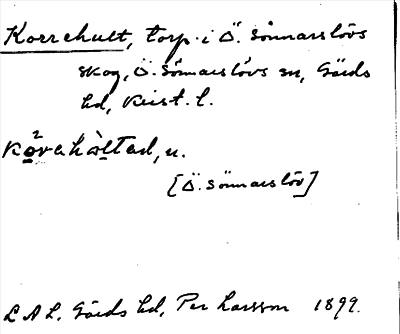 Korrehult, torp i Ö. Sönnarslövs
skog, Ö. Sönnarslövs sn, Gärds
hd, Krist. l.
kò²rahàltad, n.
[Ö. Sönnarslöv]
L A L. Gärds hd, Per Larsson 1899.